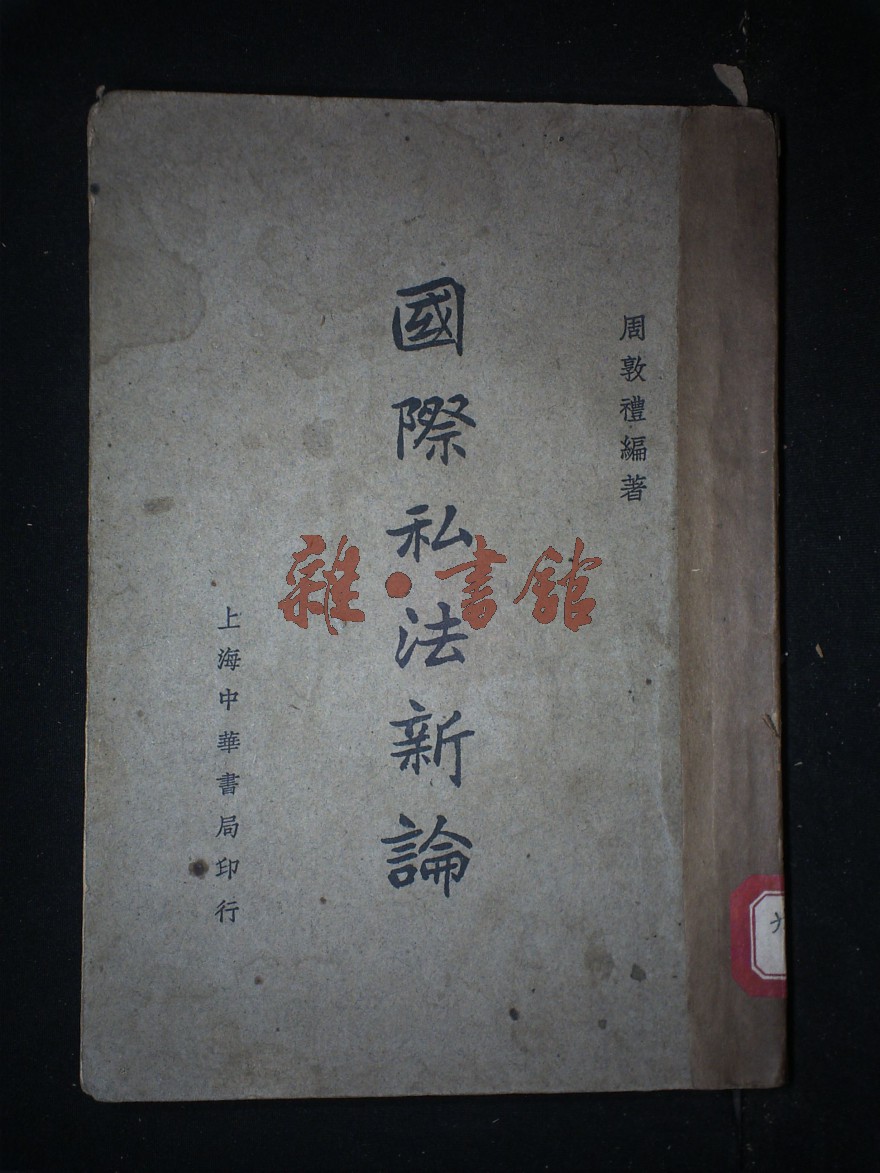 周敦禮編著
國際私法新論
上海中華書局印行
雜·書館